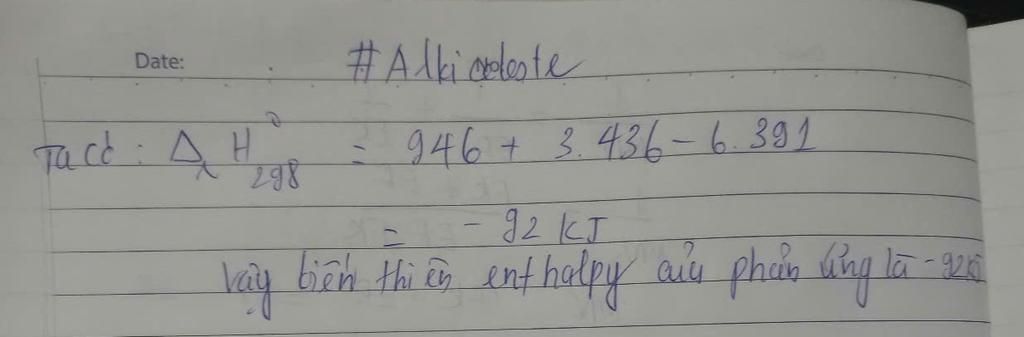 Date: #Alkiceleste
Ta có : ΔᵣH⁰₂₉₈ = 946 + 3.436 - 6.391
= - 92 KJ
Vậy biến thiên enthalpy của phản ứng là -92KJ